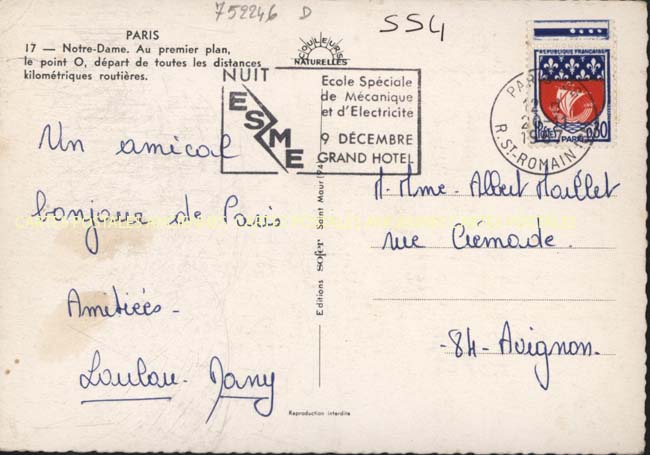 752246 D
SS4
PARIS
17 — Notre-Dame. Au premier plan,
le point O, départ de toutes les distances
kilométriques routières.
COULEURS
NATURELLES
NUIT
ESME
Ecole Spéciale
de Mécanique
et d'Electricité
9 DÉCEMBRE
GRAND HOTEL
REPUBLIQUE FRANÇAISE
0,30
PARIS
R. ST-ROMAIN
1967
Un amical
bonjour de Paris
Amitiées-
Loulou-Dany
Editions sofer Saint Maur (94)
M. Mme. Albert Maillet
rue Crémade.
-84-Avignon.
Reproduction interdite